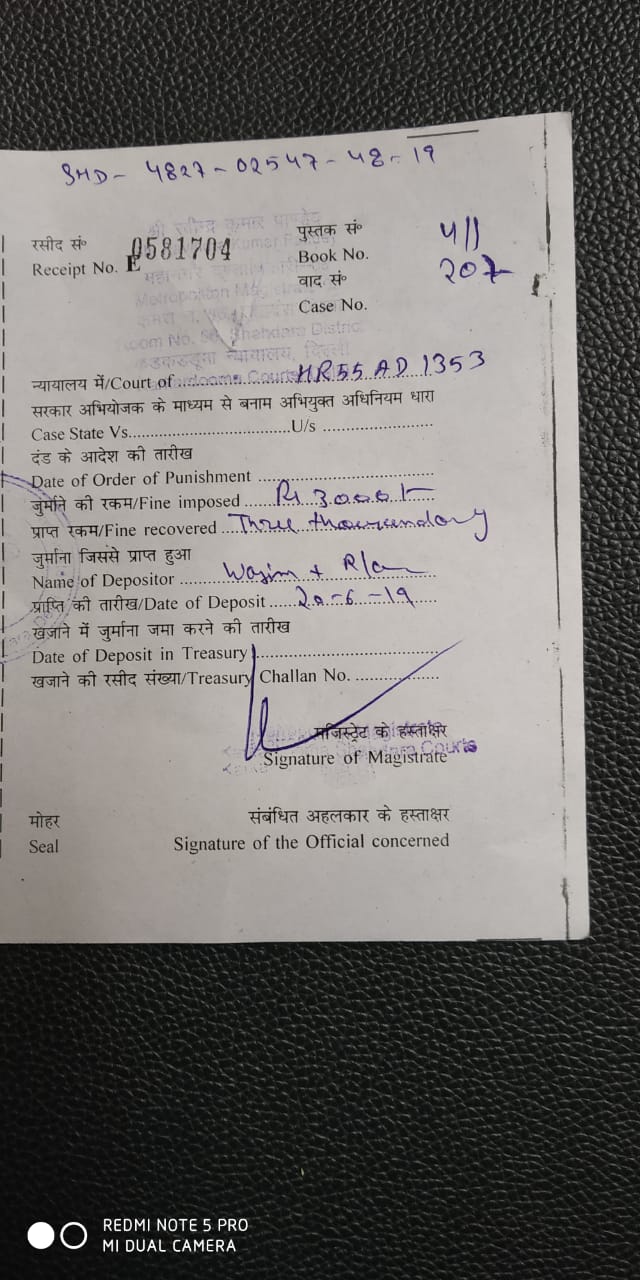 SHD - 4827 - 02547 - 48 - 19
रसीद सं०
Receipt No. E 0581704
पुस्तक सं० 411
Book No.
वाद सं० 207
Case No.
श्री रवीन्द्र कुमार पाण्डेय
Metropolitan
Shahdara District
कड़कड़डूमा न्यायालय, दिल्ली
न्यायालय में/Court of ............ HR55 AD 1353
सरकार अभियोजक के माध्यम से बनाम अभियुक्त अधिनियम धारा
Case State Vs..............................U/s .....................
दंड के आदेश की तारीख
Date of Order of Punishment .................................
जुर्माने की रकम/Fine imposed ..... Rs 3000/-
प्राप्त रकम/Fine recovered .... Three thousand only
जुर्माना जिससे प्राप्त हुआ
Name of Depositor ....... Wasim
प्राप्ति की तारीख/Date of Deposit ..... 20-6-19 .....
खज़ाने में जुर्माना जमा करने की तारीख
Date of Deposit in Treasury ...................................
खजाने की रसीद संख्या/Treasury Challan No. ................
मजिस्ट्रेट के हस्ताक्षर
Shahdara Courts
Signature of Magistrate
मोहर
संबंधित अहलकार के हस्ताक्षर
Seal
Signature of the Official concerned
REDMI NOTE 5 PRO
MI DUAL CAMERA